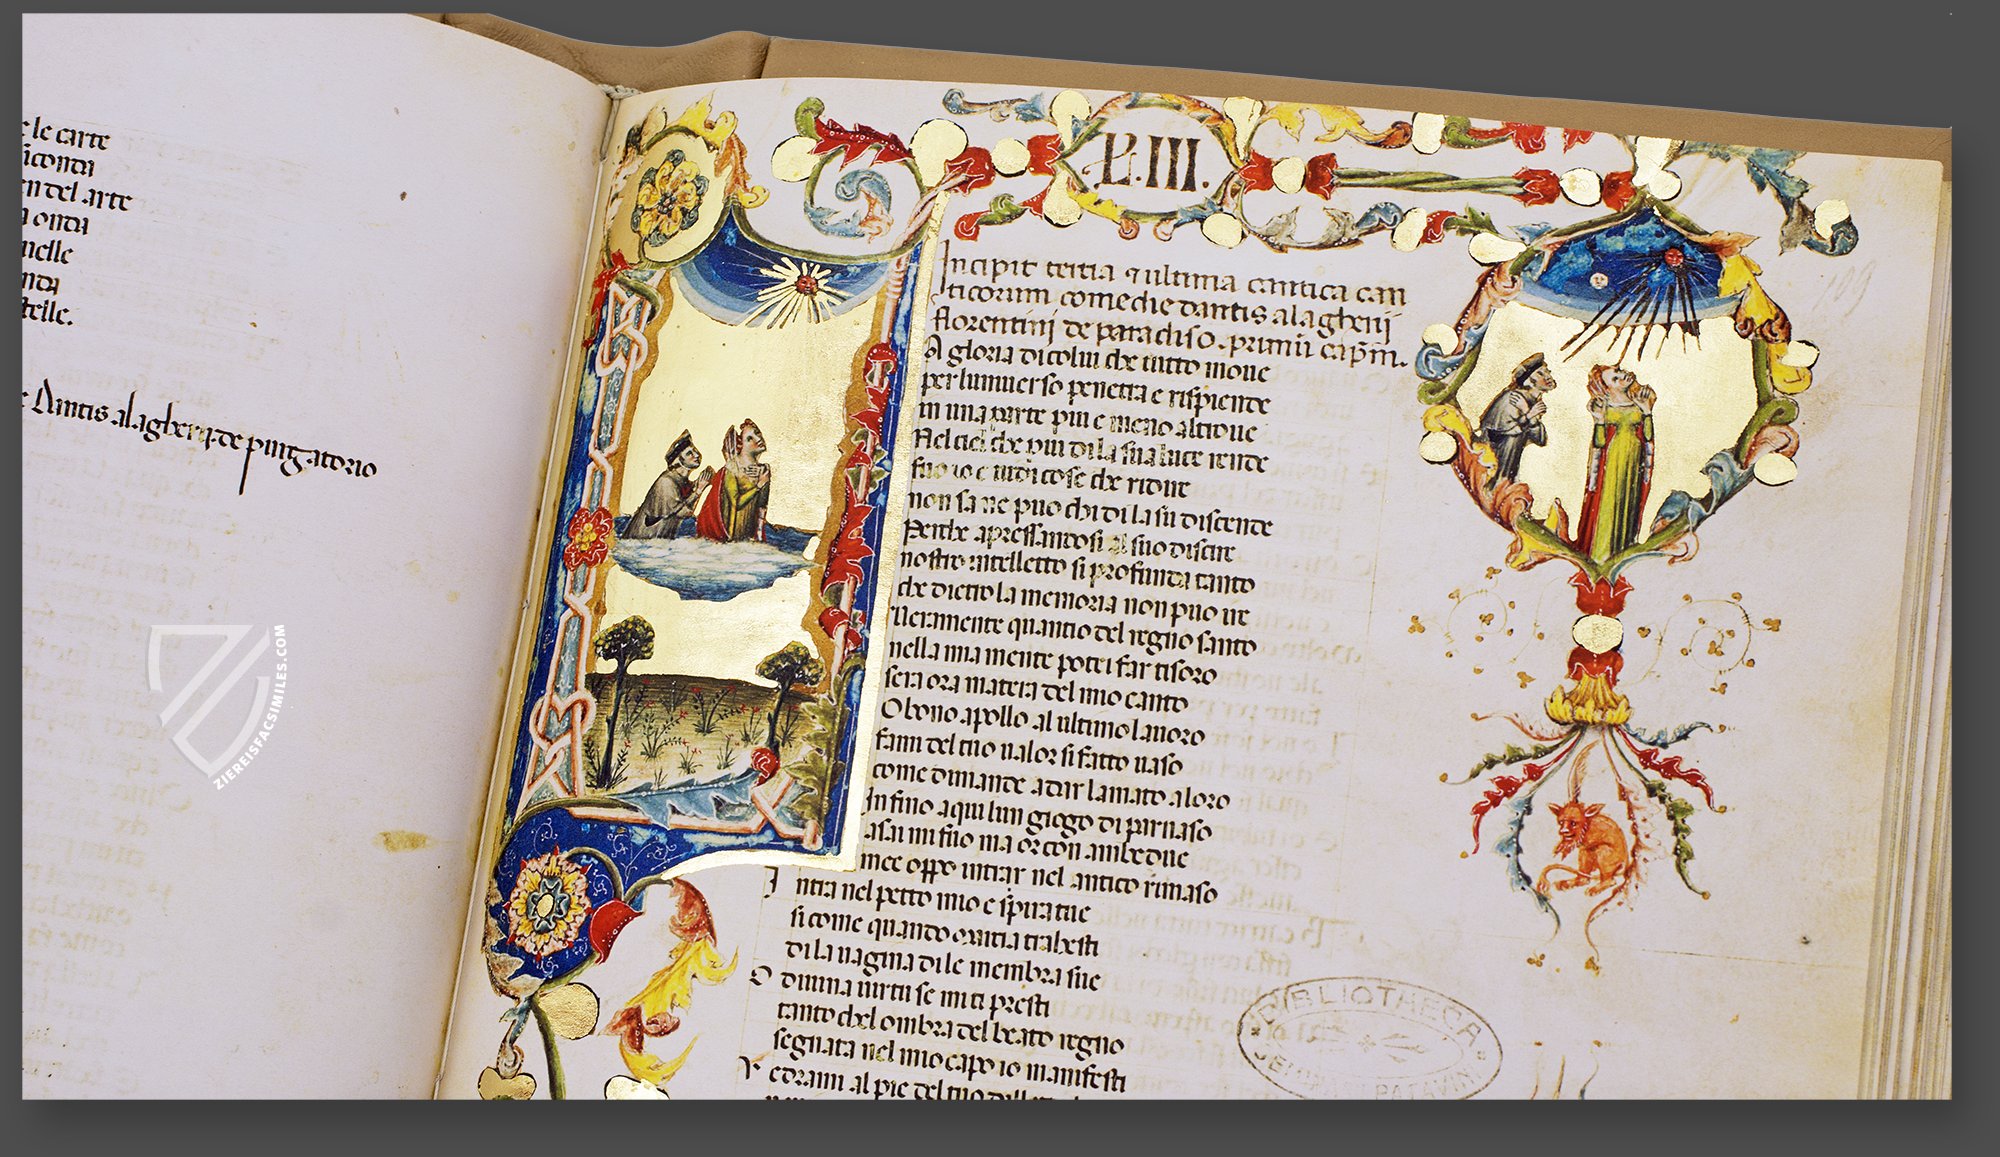 e le carte
siconda
en del arte
a onda
nelle
nda
stelle.
e Dantis alagherij de purgatorio
L.III.
Incipit tertia & ultima cantica can
ticorum comedie dantis alagherij
florentinj de paradiso. primū capm̄.
A gloria di colui che tutto moue
per luniuerso penetra e rispiende
in una parte piu e meno altroue
Nel ciel che piu di la sua luce rende
fuo io e uidi cose che ridire
non sa ne puo chi di la su discende
Perche apressandosi al suo disire
nostro intelletto si profunda tanto
che dietro la memoria non puo ire
Veramente quantio del regno santo
nella mia mente potei far tisoro
sera ora matera del mio canto
O bono apollo al ultimo lauoro
fami del tuo ualor si fatto uaso
come dimande a dar lamato aloro
Infino a qui lun giogo di parnaso
asai mi fuo ma or con ambedue
mee oppo intrar nel antico rimaso
Intra nel petto mio e spira tue
si come quando marsia trahesti
di la uagina di le membra sue
O diuina uirtu se mi ti presti
tanto chel ombra del beato regno
segnata nel mio capo io manifesti
Vedrami al pie del tuo
BIBLIOTHECA
PATAVINI
ZIEREISFACSIMILES.COM